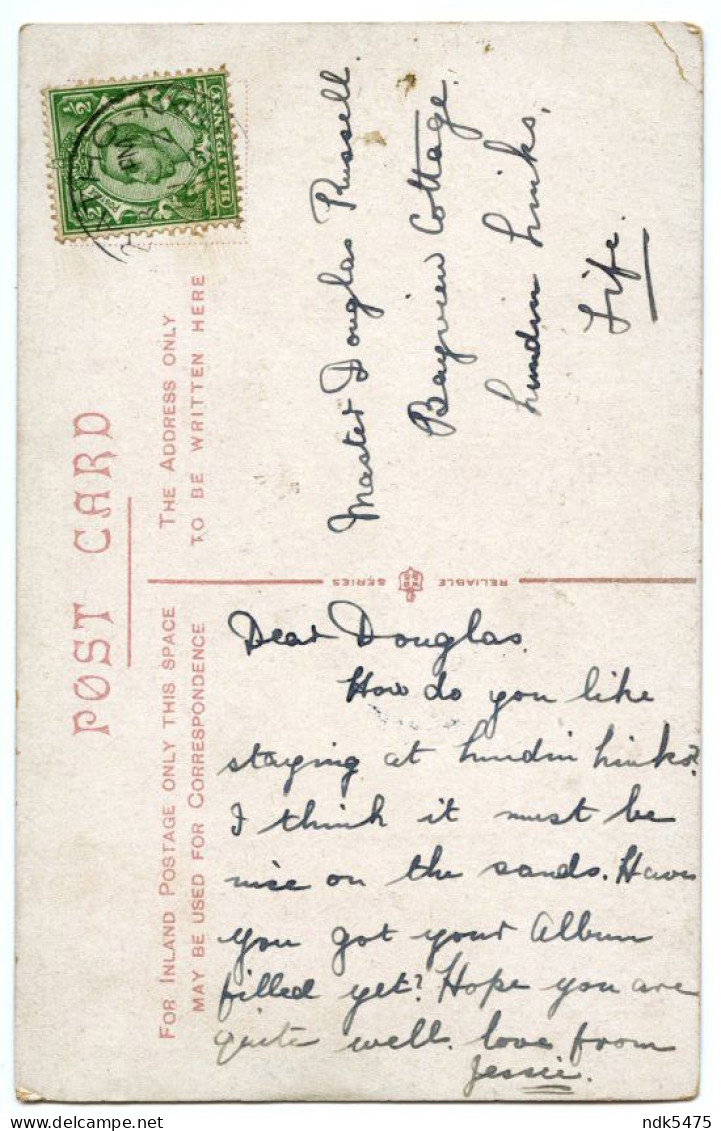 POST CARD
FOR INLAND POSTAGE ONLY THIS SPACE
MAY BE USED FOR CORRESPONDENCE
THE ADDRESS ONLY
TO BE WRITTEN HERE
RELIABLE SERIES
HALFPENNY
POSTAGE
½
½
PM
Master Douglas Russell.
Bayview Cottage.
Lundin Links,
Fife.
Dear Douglas.
How do you like
staying at Lundin Links?
I think it must be
nice on the sands. Have
you got your Album
filled yet? Hope you are
quite well. love from
Jessie.
ndk5475